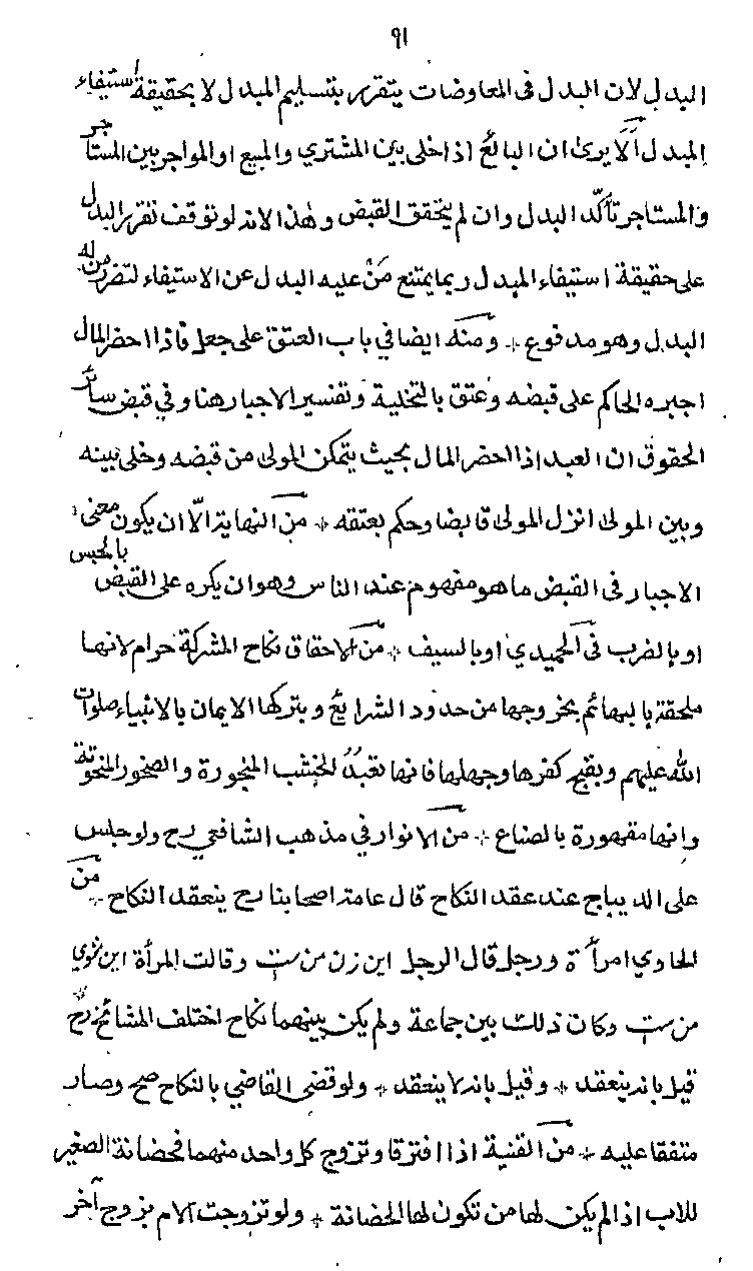 ٩١
البدل لان البدل فى المعاوضات يتقرر بتسليم المبدل لا بحقيقة استيفاء
المبدل ألا يرى ان البائع اذا خلى بين المشتري والمبيع او المواجر بين المستاجر
والمستاجر تأكّد البدل وان لم يتحقق القبض وهذا لانه لو توقف تقرر البدل
على حقيقة استيفاء المبدل ربما يمتنع مَنْ عليه البدل عن الاستيفاء لتضرر من له
البدل وهو مدفوع ومنه ايضا في باب العتق على جعل فاذا احضر المال
اجبره الحاكم على قبضه وعتق بالتخلية وتفسير الاجبار هنا وفي قبض سائر
الحقوق ان العبد اذا احضر المال بحيث يتمكن المولى من قبضه وخلى بينه
وبين المولى انزل المولى قابضا وحكم بعتقه من النهاية الّا ان يكون معنى
الاجبار فى القبض ما هو مفهوم عند الناس وهو ان يكره على القبض بالحبس
او بالضرب فى الحميدي او بالسيف من الاحقاق نكاح المشركة حرام لانها
ملحقة بالبهائم بخروجها من حدود الشرايع وبتركها الايمان بالانبياء صلوات
الله عليهم وبقبح كفرها وجهلها فانها تعبدُ الخشب المنجورة والصخور المنحوتة
وانها مقهورة بالصناع من الانوار في مذهب الشافعي رح ولو جلس
على الديباج عند عقد النكاح قال عامة اصحابنا رح ينعقد النكاح من
الحاوي امرأة ورجل قال الرجل اين زن من ست وقالت المرأة اين شوي
من ست وكان ذلك بين جماعة ولم يكن بينهما نكاح اختلف المشائخ رح
قيل بانه ينعقد وقيل بانه لا ينعقد ولو قضى القاضي بالنكاح صح وصار
متفقا عليه من القنية اذا افترقا وتزوج كل واحد منهما فحضانة الصغير
للاب اذا لم يكن لها من تكون لها الحضانة ولو تزوجت الام بزوج آخر